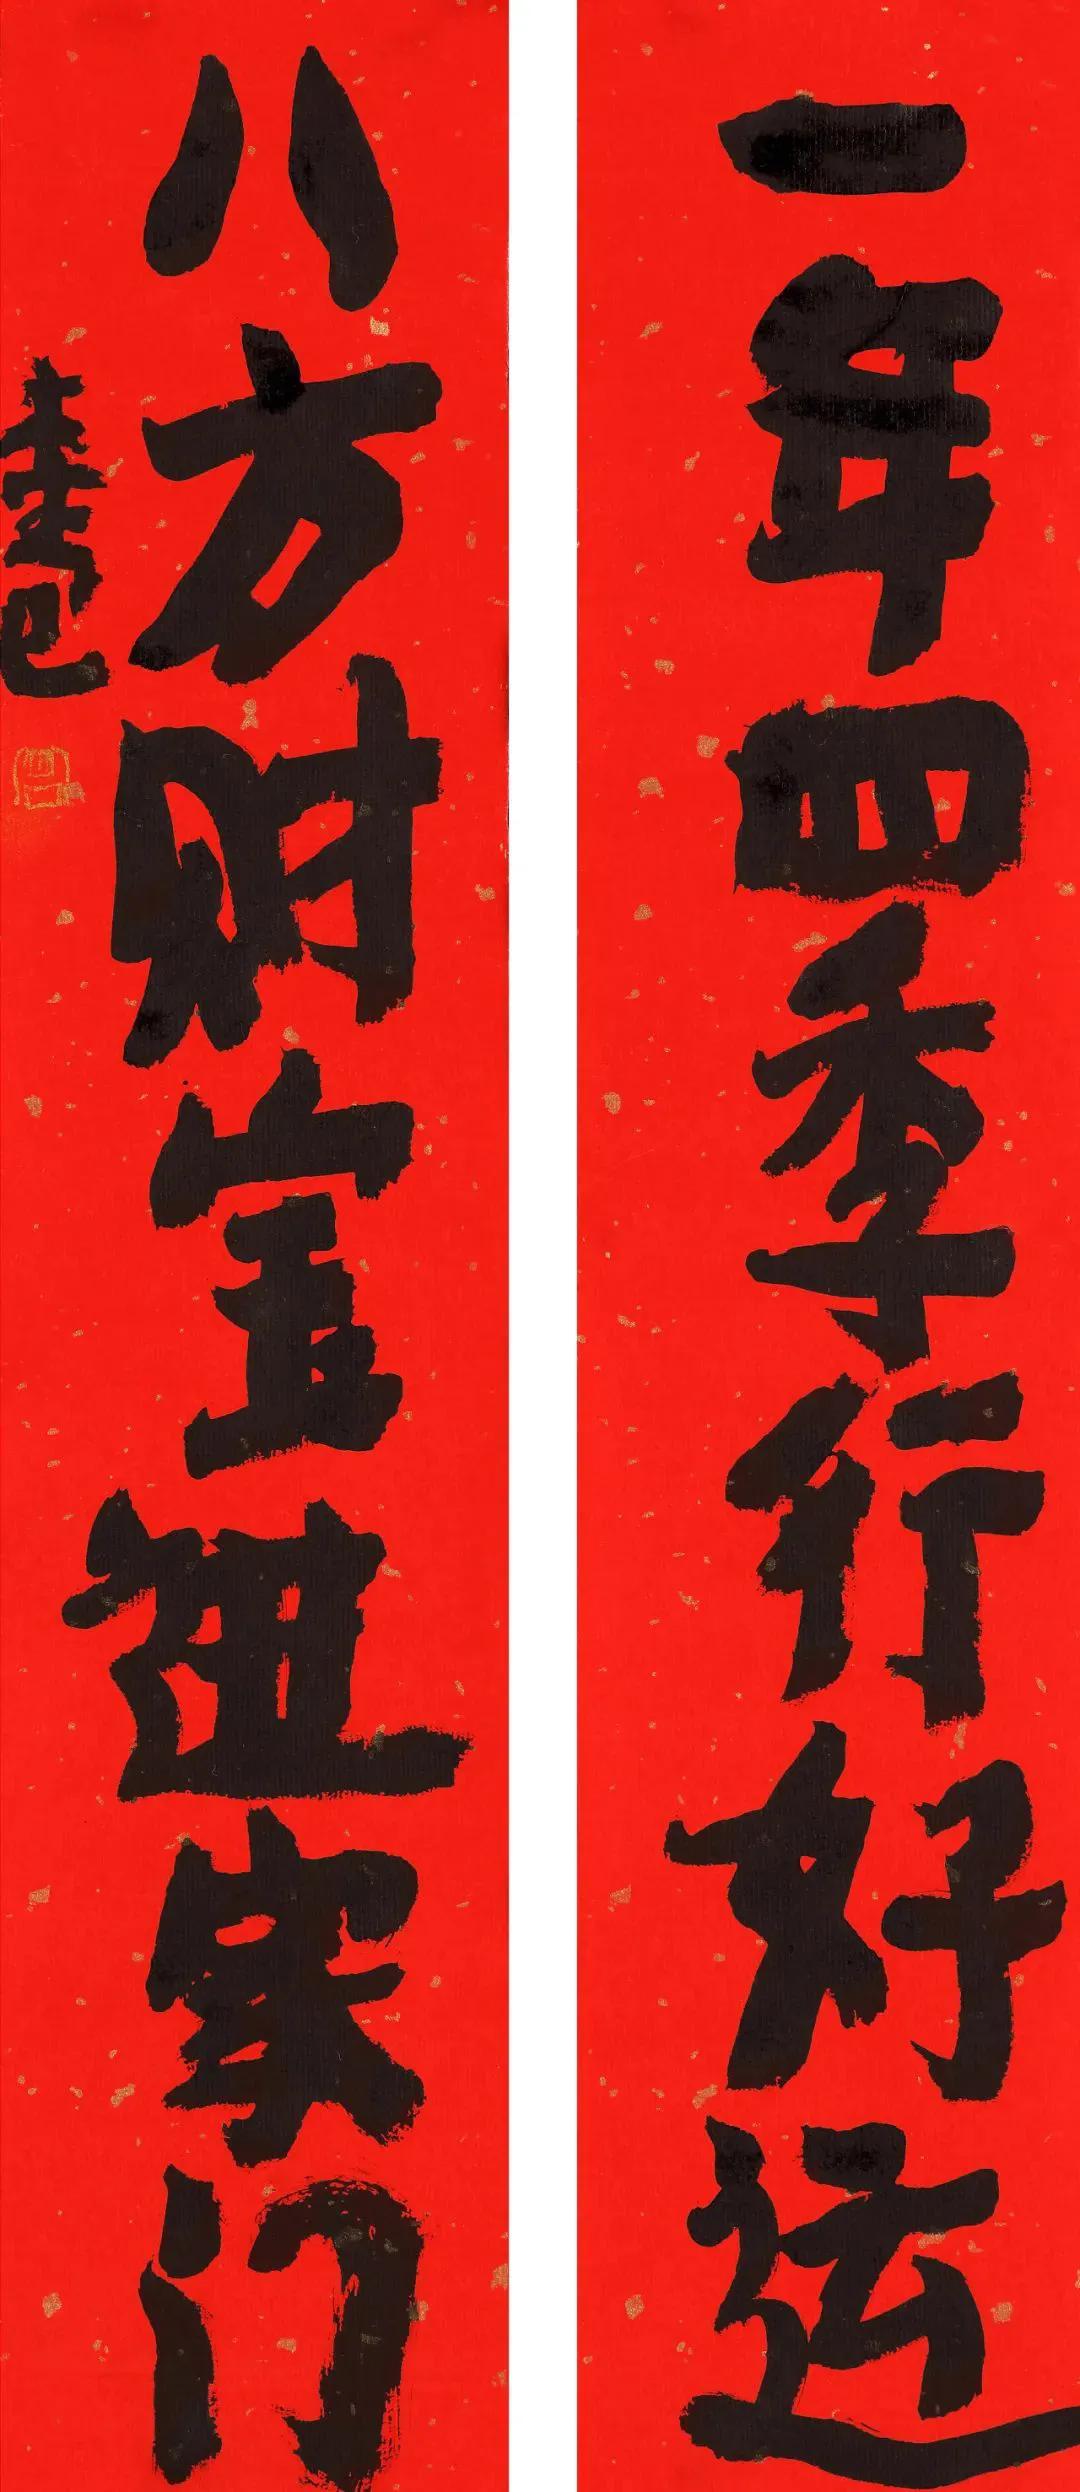 一年四季行好运
八方财宝进家门